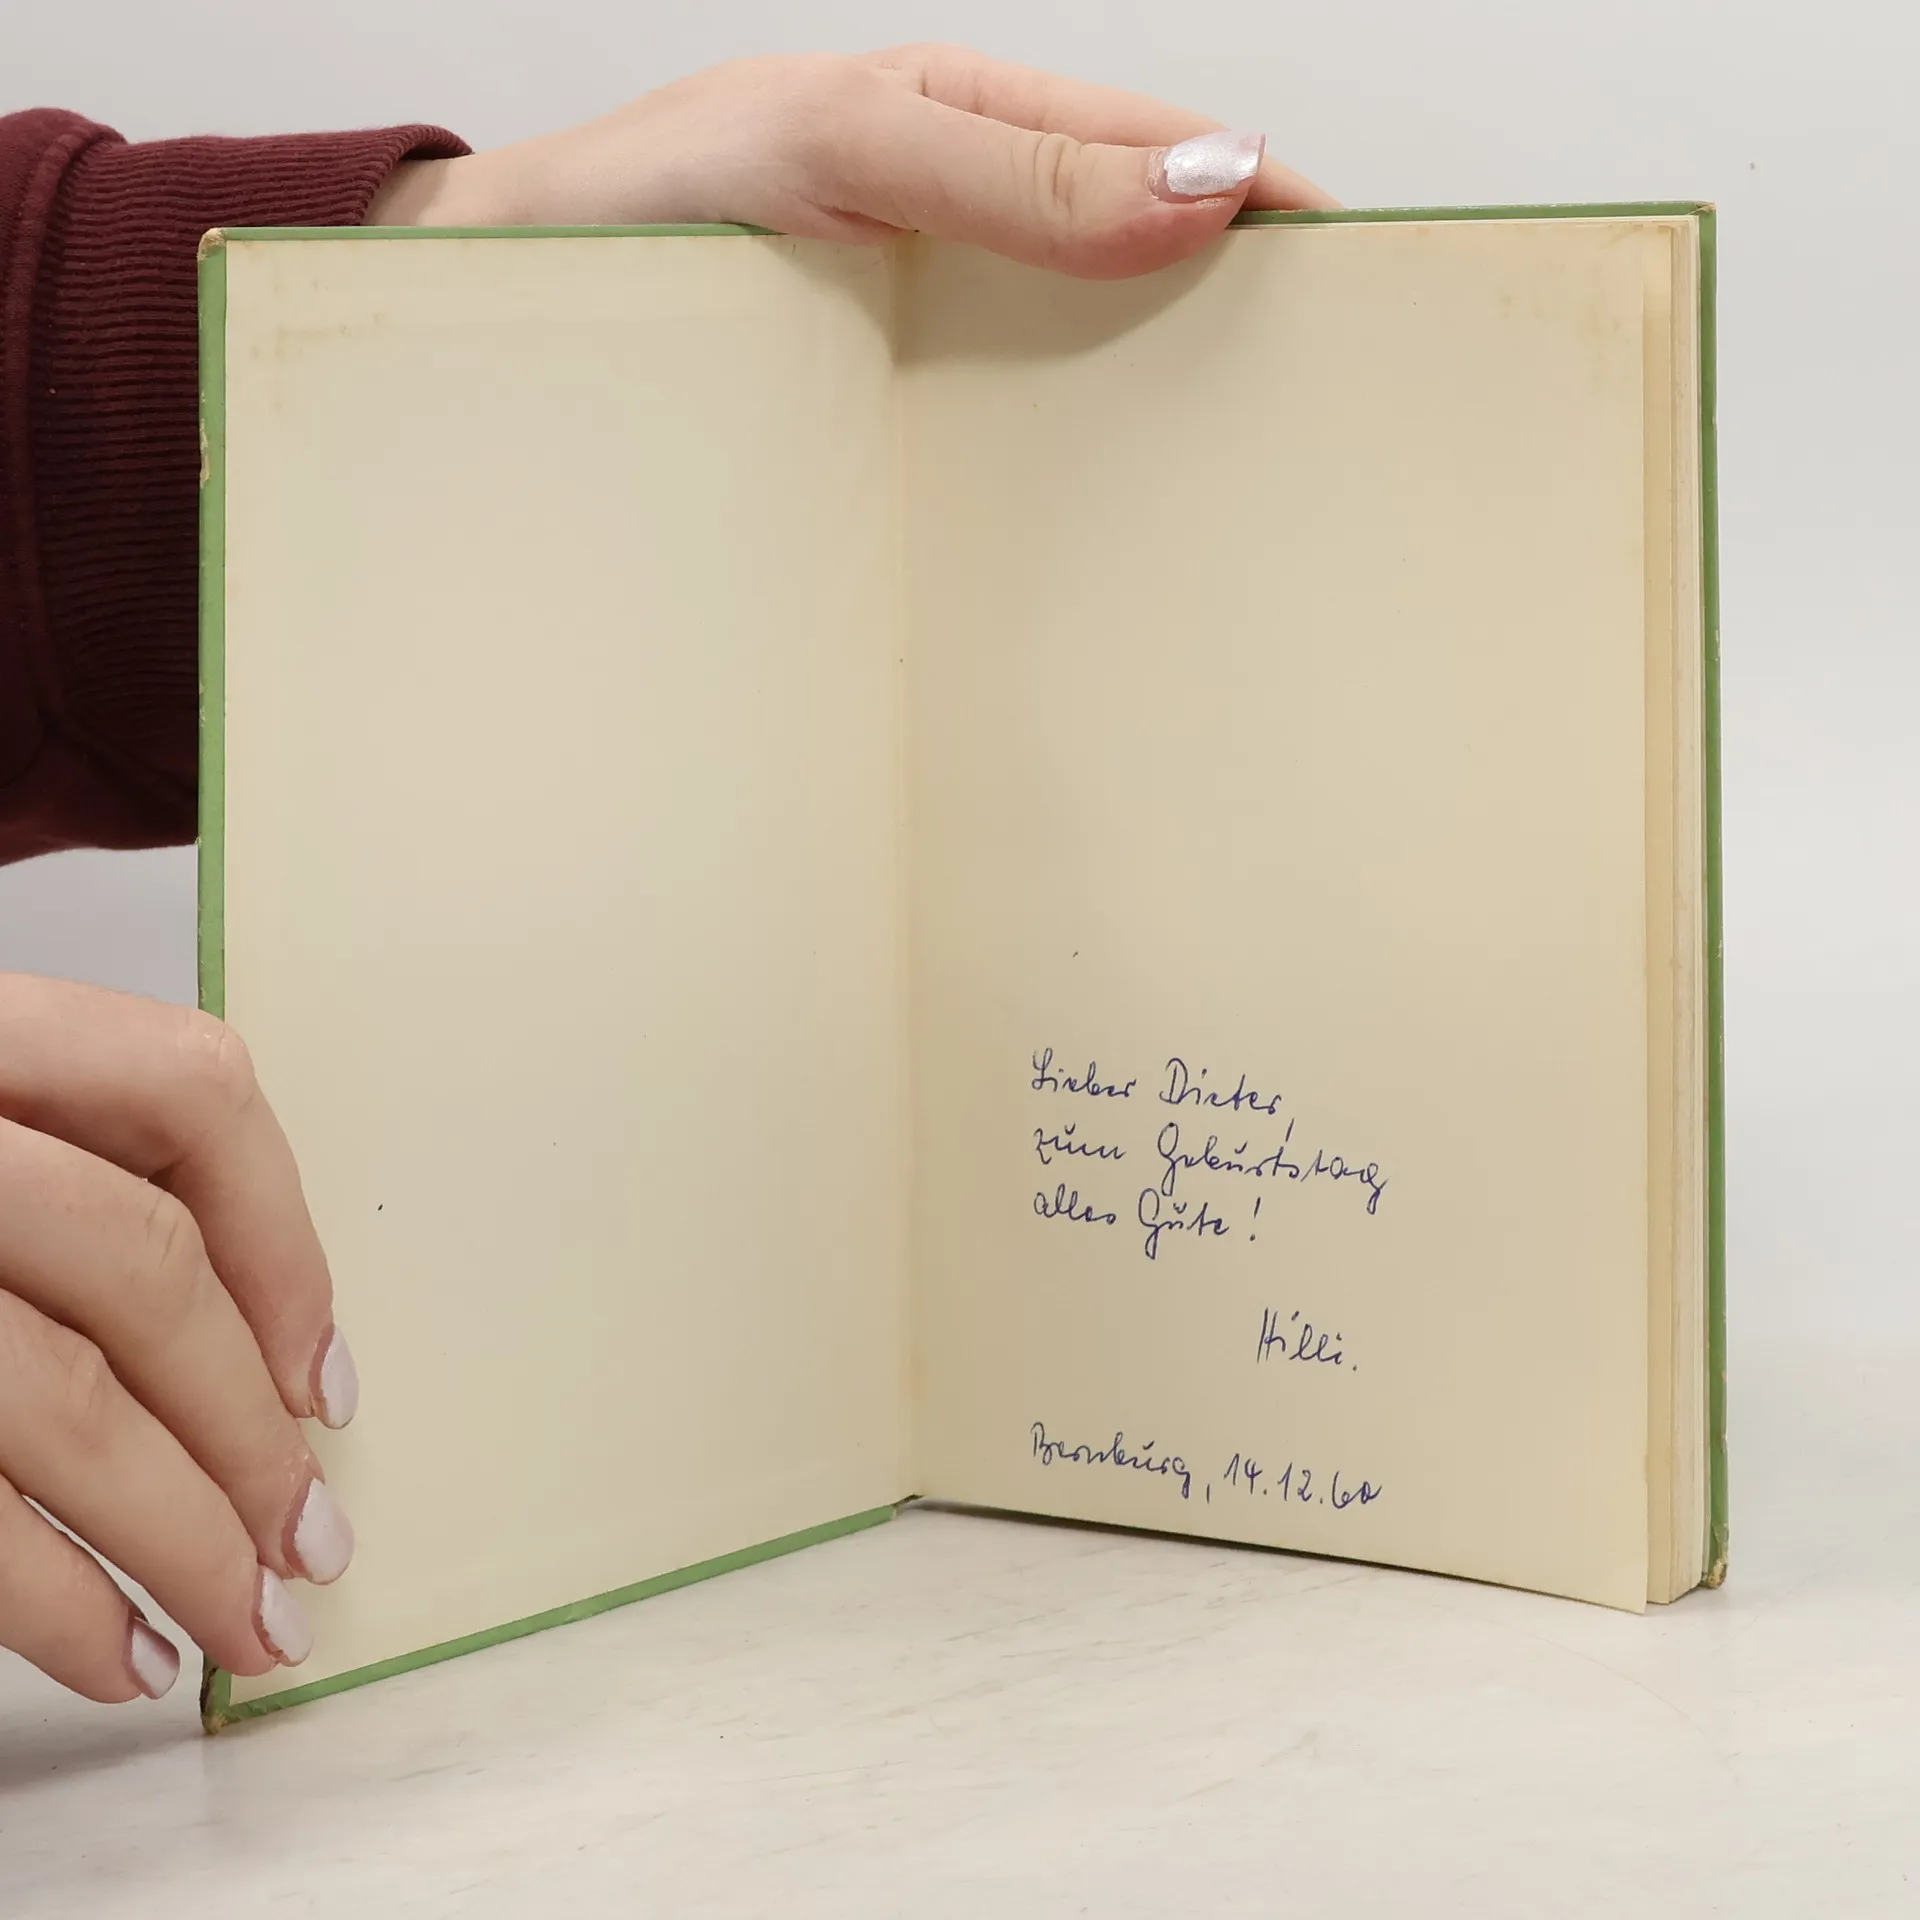 Lieber Dieter,
zum Geburtstag
alles Gute!
Hilli.
Bernburg, 14.12.60